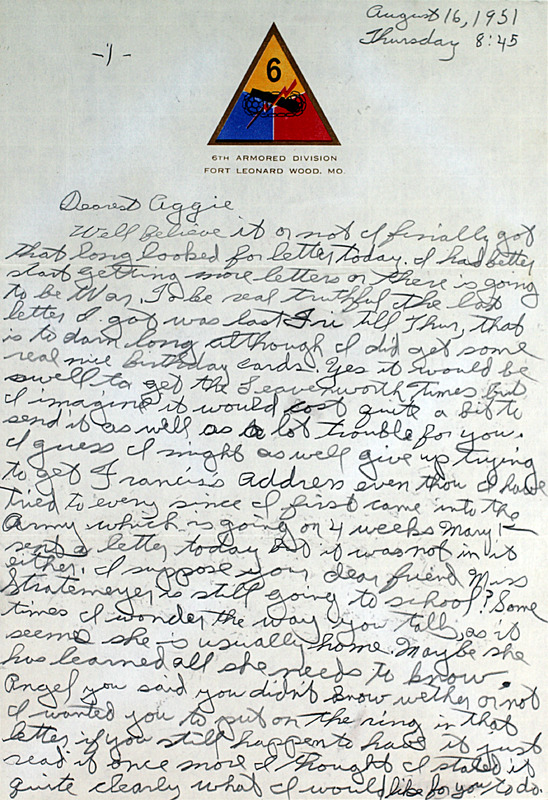 August 16, 1951
Thursday 8:45
-1-
6
6TH ARMORED DIVISION
FORT LEONARD WOOD, MO.
Dearest Aggie
Well believe it or not I finially got
that long looked for letter today. I had better
start getting more letters or there is going
to be War. To be real truthful the last
letter I got was last Fri till Thur, that
is to darn long although I did get some
real nice birthday cards. Yes it would be
swell to get the Leavenworth Times but
I imagine it would cost quite a bit to
send it as well as a lot trouble for you.
I guess I might as well give up trying
to get Francis's address even thou I have
tried to every since I first came into the
Army which is going on 4 weeks Mary K
send a letter today but it was not in it
either. I suppose your dear friend Miss
Stratemeyer is still going to school? Some
times I wonder the way you talk, as it
seems she is usually home. Maybe she
has learned all she needs to know.
Angel, you said you didn't know wether or not
I wanted you to put on the ring in that
letter if you still happen to have it just
read it once more I thought I stated it
quite clearly what I would like for you to do.